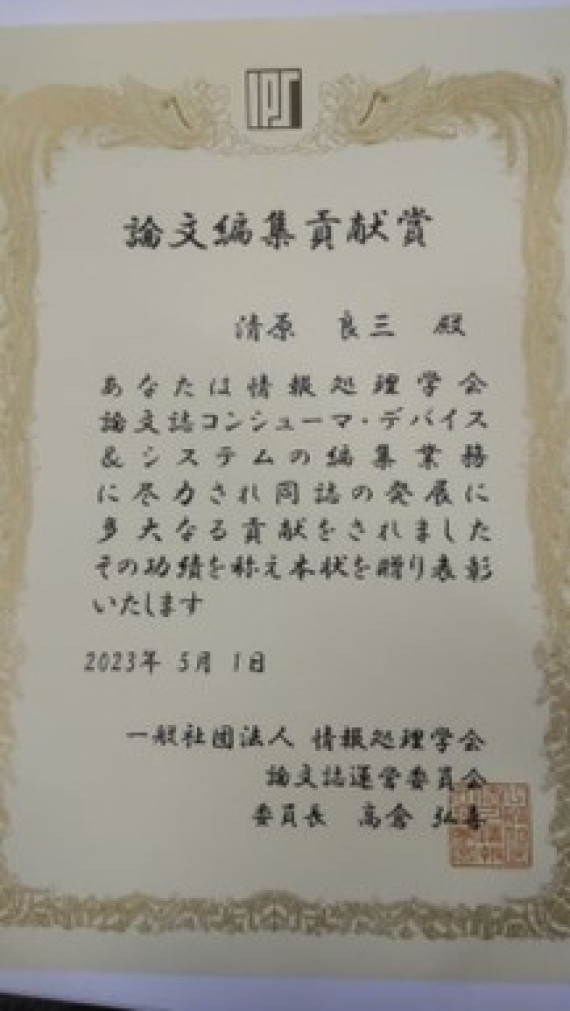 IPSJ
論文編集貢献賞
清原 良三 殿
あなたは情報処理学会
論文誌コンシューマ・デバイス
&システムの編集業務
に尽力され同誌の発展に
多大なる貢献をされました
その功績を称え本状を贈り表彰
いたします
2023年 5月 1日
一般社団法人 情報処理学会
論文誌運営委員会
委員長 高倉 弘喜